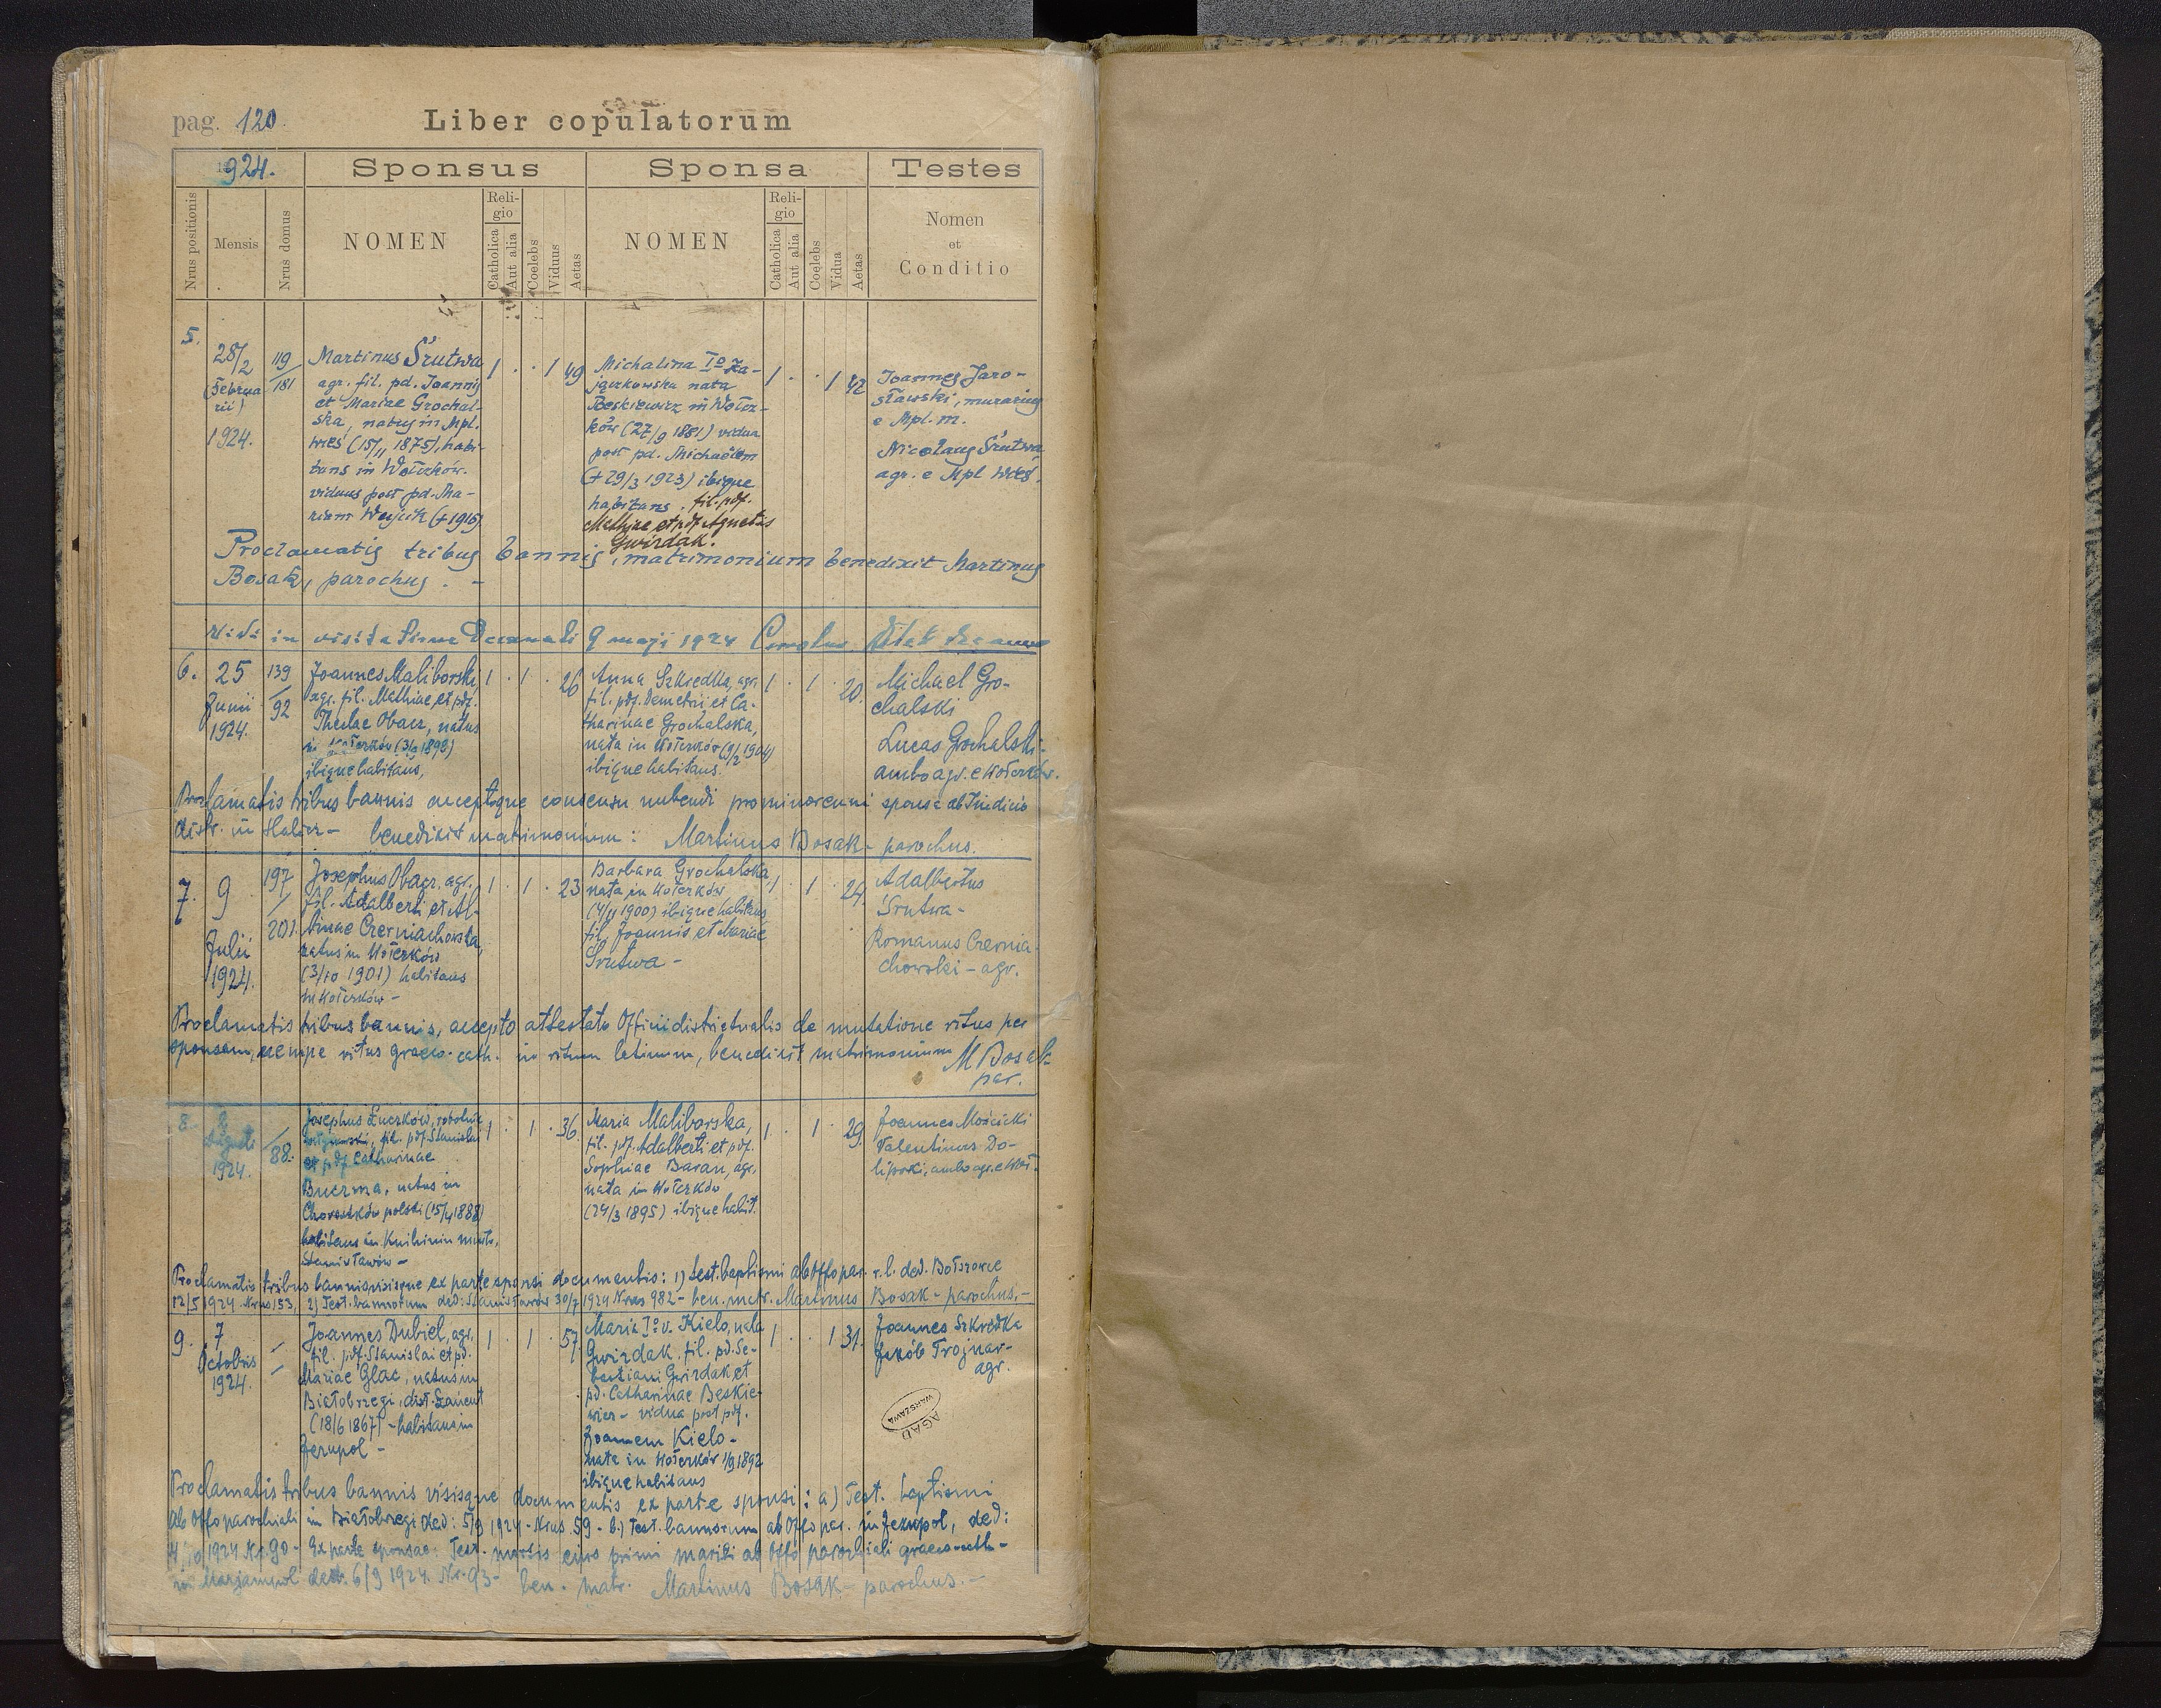 pag. 120
Liber copulatorum
1924.
Sponsus
Sponsa
Testes
Nrus positionis
Mensis
Nrus domus
NOMEN
Religio
Catholica
Aut alia
Coelebs
Viduus
Aetas
NOMEN
Religio
Catholica
Aut alia
Coelebs
Vidua
Aetas
Nomen
et
Conditio
5.
28/2
(Februa
rii)
1924.
119
181
Martinus Śrutwa
agr. fil. pd. Joannis
et Mariae Grochal-
ska, natus in Mpl.
wieś (15/11 1875), habi-
tans in Wołczków.
viduus post pd. Ma-
riam Wujcik (+1916)
1 . . 1 49
Michalina Io Za-
jączkowska nata
Beskiewicz in Wołcz-
ków (27/9 1881) vidua
post pd. Michaëlem
(+29/3 1923) ibique
habitans. fil. pdf.
Mathiae et pdf. Agnetis
Gwizdak.
1 . . 1 42
Joannes Jaro-
sławski, murarius
e Mpl. m.
Nicolaus Śrutwa
agr. e Mpl wieś.
Proclamatis tribus bannis, matrimonium benedixit Martinus
Bosak, parochus. -
Vidi in visitatione Decanali 9 maji 1924 Carolus
6.
25
Junii
1924.
139
92
Joannes Maliborski,
agr. fil. Mathiae et pdf.
Theclae Obacz, natus
in Wołczków (3/9 1898)
ibique habitans,
1 . 1 . 26
Anna Szkredka, agr.
fil. pdf. Demetrii et Ca-
tharinae Grochalska,
nata in Wołczków (9/2 1904)
ibique habitans.
1 . 1 . 20.
Michael Gro-
chalski
Lucas Grochalski-
ambo agr. e Wołczków.
Proclamatis tribus bannis acceptoque consensu nubendi pro minorenni sponsa ab Iudicio
distr. in Halicz - benedixit matrimonium: Martinus Bosak - parochus.
7.
9
Julii
1924.
197
201.
Josephus Obacz. agr.
fil. Adalberti et Al-
binae Czerniachowska,
natus in Wołczków
(3/10 1901) habitans
in Wołczków -
1 . 1 . 23
Barbara Grochalska,
nata in Wołczków
(4/11 1900) ibique habitans
fil. Joannis et Mariae
Śrutwa -
1 . 1 . 24.
Adalbertus
Śrutwa -
Romanus Czernia-
chowski - agr.
Proclamatis tribus bannis, accepto attestato Officii districtualis de mutatione ritus per
sponsam, nempe ritus graeco-cath. in ritum latinum, benedixit matrimonium M Bosak
par.
8.
1924.
88.
Josephus Łuczków, robotnik
fil. pdf. Stanislai
et pdf Catharinae
Buczma, natus in
Chorostków polski (15/4 1888)
habitans in Knihinin miasto,
Stanisławów -
1 . 1 . 36.
Maria Maliborska,
fil. pdf. Adalberti et pdf.
Sophiae Baran, agr.
nata in Wołczków
(24/3 1895) ibique habit.
1 . 1 . 29.
Joannes Mościcki
Valentinus Do-
liński, ambo agr. e Woł.
Proclamatis tribus bannis visisque ex parte sponsi documentis: 1) test. baptismi ab Offo par. r. l. ded. Bołszowce
12/5 1924 Nrus 153, 2) Test. bannorum ded: Stanisławów 30/7 1924 Nrus 982 - ben. matr. Martinus Bosak - parochus. -
9.
7
Octobris
1924.
Joannes Dubiel, agr.
fil. pdf. Stanislai et pd.
Mariae Glac, natus in
Białobrzegi, distr. Łańcut
(18/6 1867) - habitans in
Jezupol -
1 . 1 . 57.
Maria Io v. Kielo, nata
Gwizdak, fil. pd. Se-
bastiani Gwizdak et
pd. Catharinae Beskie-
wicz - vidua post pdf.
Joannem Kielo -
nata in Wołczków 1/9 1892
ibique habitans
1 . . 1 31.
Joannes Szkredka
Jakób Trojnar -
agr.
AGAD
WARSZAWA
Proclamatis tribus bannis visisque documentis ex parte sponsi: a) Test. baptismi
ab Offo parochiali in Białobrzegi ded: 5/9 1924 - Nrus 59 - b.) Test. bannorum ab Offo par. in Jezupol, ded:
4/10 1924 Nr. 90 - Ex parte sponsae: Test. mortis ejus primi mariti ab Offo parochiali graeco-cath -
in Marjampol ded. 6/9 1924. Nr. 93 - ben. matr. Martinus Bosak - parochus. -